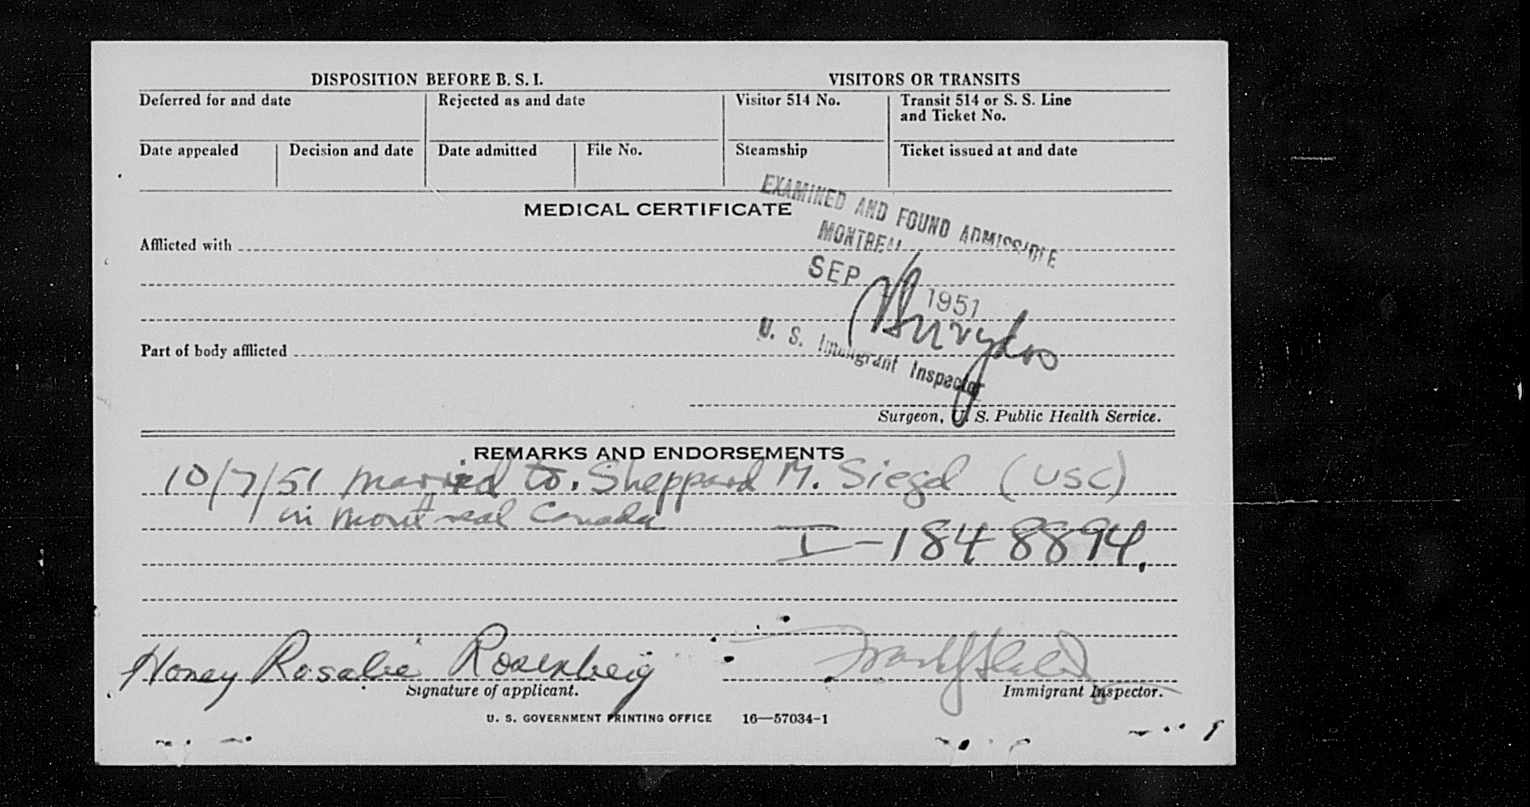 DISPOSITION BEFORE B. S. I.
VISITORS OR TRANSITS
Deferred for and date
Rejected as and date
Visitor 514 No.
Transit 514 or S. S. Line
and Ticket No.
Date appealed
Decision and date
Date admitted
File No.
Steamship
Ticket issued at and date
MEDICAL CERTIFICATE
EXAMINED AND FOUND ADMISSIBLE
MONTREAL
Afflicted with
SEP 1951
U. S. Immigrant Inspector
Part of body afflicted
Surgeon, U. S. Public Health Service.
REMARKS AND ENDORSEMENTS
10/7/51 married to. Sheppard M. Siegel (USC)
in Montreal Canada
I-1848894.
Honey Rosalie Rosenberg
Signature of applicant.
Immigrant Inspector.
U. S. GOVERNMENT PRINTING OFFICE 16—57034-1